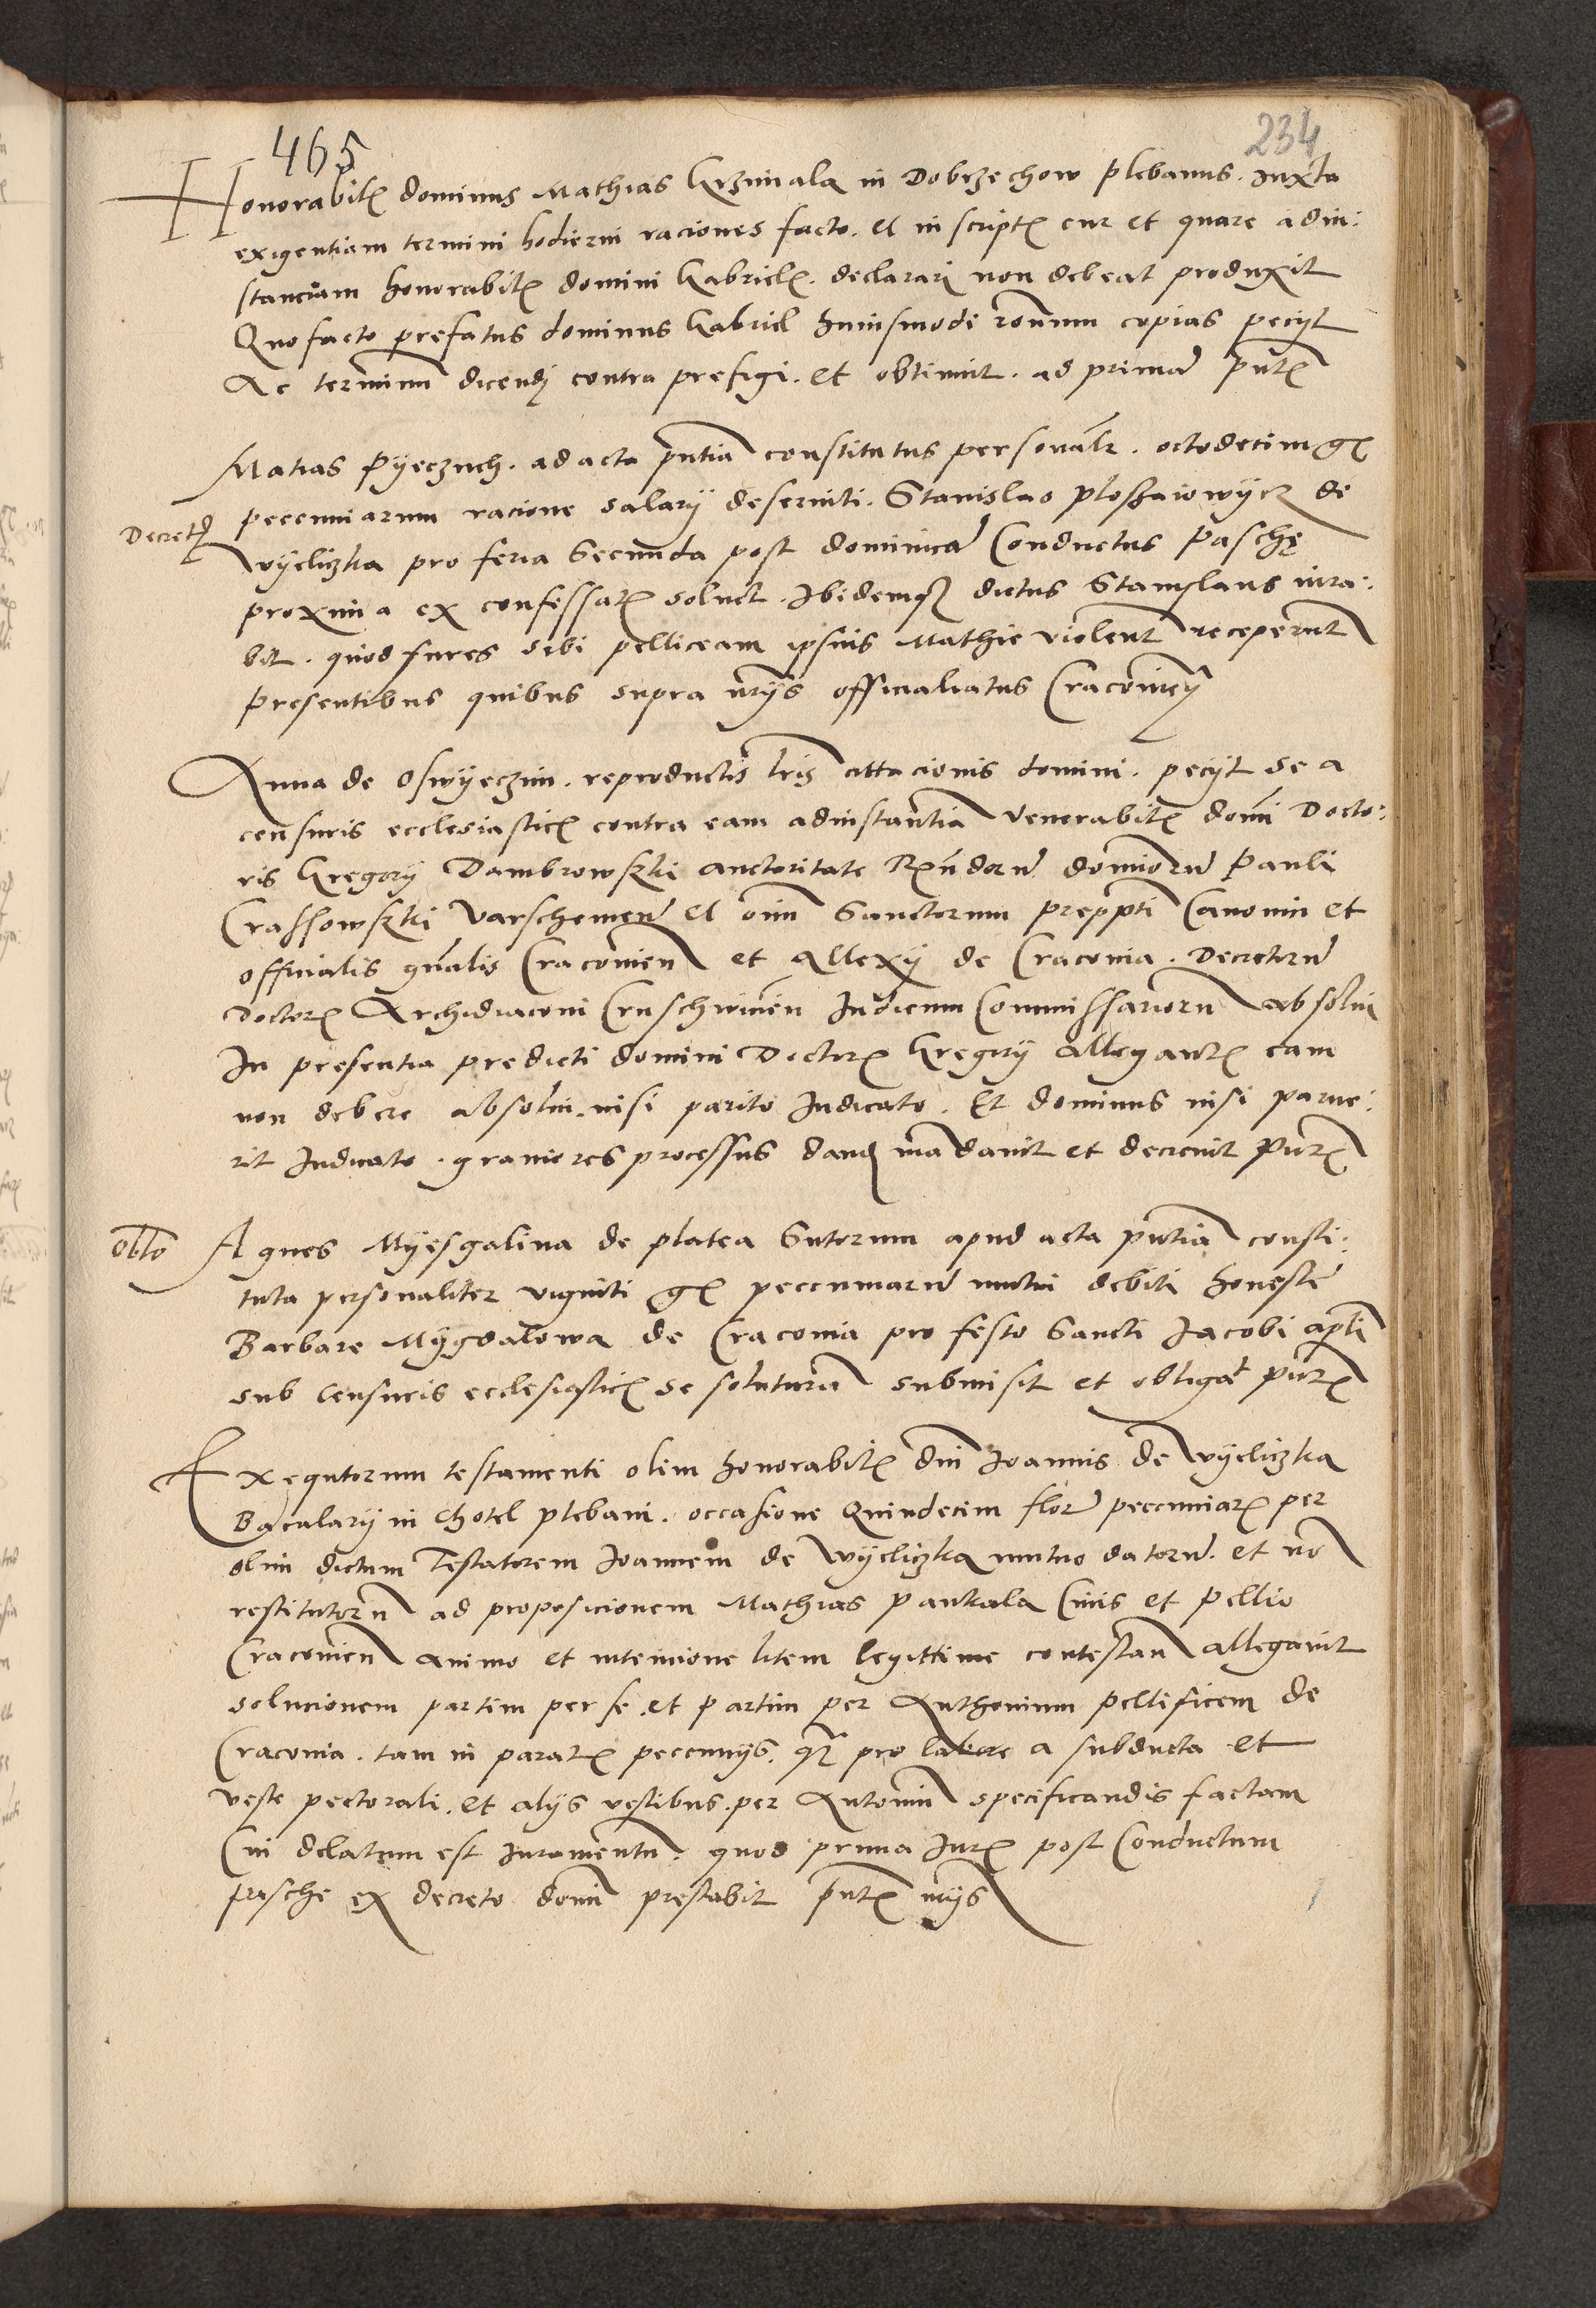 465
234
Honorabil dominus Mathias Grzimala in Dobrzechow plebanus. Juxta
exigentiam termini hodierni raciones facto. et in script cur et quare ad in:
stanciam honorabil domini Gabriel. declarari non debeat produxit
Quo facto prefatus dominus Gabriel huiusmodi ronum copias peciyt
Ac terminum dicendi contra prefigi. et obtinuit. ad primam pntz
Matias Pyeczuch. ad acta pntia constitutus personalr. octodecim gr
Decretu pecuniarum racione salary deserviti. Stanislao Ploszaiowycz de
vyeliczka pro feria Secunda post dominica Conductus Paschę
proximia ex confessat solvet. Ibidemq dictus Stanyslaus iura:
bit. quod fures sibi pelliceam ipsius Mathie violent receperunt
presentibus quibus supra nrys officialiatus Cracovien
Anna de Oswyeczim. reproductis lris cittacionis domini. peciyt se a
censuris ecclesiastic contra eam ad instantia venerabil domi Docto:
ris Gregory Dambrowsky auctoritate Rndor dominor Pauli
Crassowsky Varschovien et oim Sanctorum preppti Canonin et
officialis gnalis Cracovien et Allexy de Cracovia. Decretor
Doctor Archidiaconi Cruschvicien Judicum Commissarior absolvi
In presentia predicti domini Doctor Gregory allegant eam
non debere absolvi. nisi parito Judicato. Et dominus nisi parue:
rit Judicato. graviores processus dandi mandavit et decrevit pntz
Obto Agnes Myesgalina de platea Sutorum apud acta pntia consti:
tuta personaliter viginti gr pecuniaru mutui debiti honeste
Barbare Mygdalowa de Cracovia pro festo Sancti Jacobi apli
sub censuris ecclesiastic se soluturam submisit et obligat pntz
Exequtorum testamenti olim honorabil dni Joannis de vyeliczka
Bacalary in Chotel plebani. occasione Quindecim flor pecuniar per
olim dictum Testatorem Joannem de Wyeliczka mutuo dator. et no
restitutor ad proposicionem Mathias Pantala Civis et Pellio
Cracovien animo et intencione litem legittime contestan allegavit
solucionem partim per se et partim per Anthonium pellificem de
Cracovia. tam in parat pecunys. q pro labore a subducta et
veste pectorali. et alys vestibus. per Antoniu specificandis factam
Cui delatum est iuramentu. quod prima Jur post Conductum
pasche ex decreto domi prestabit pntz nrys